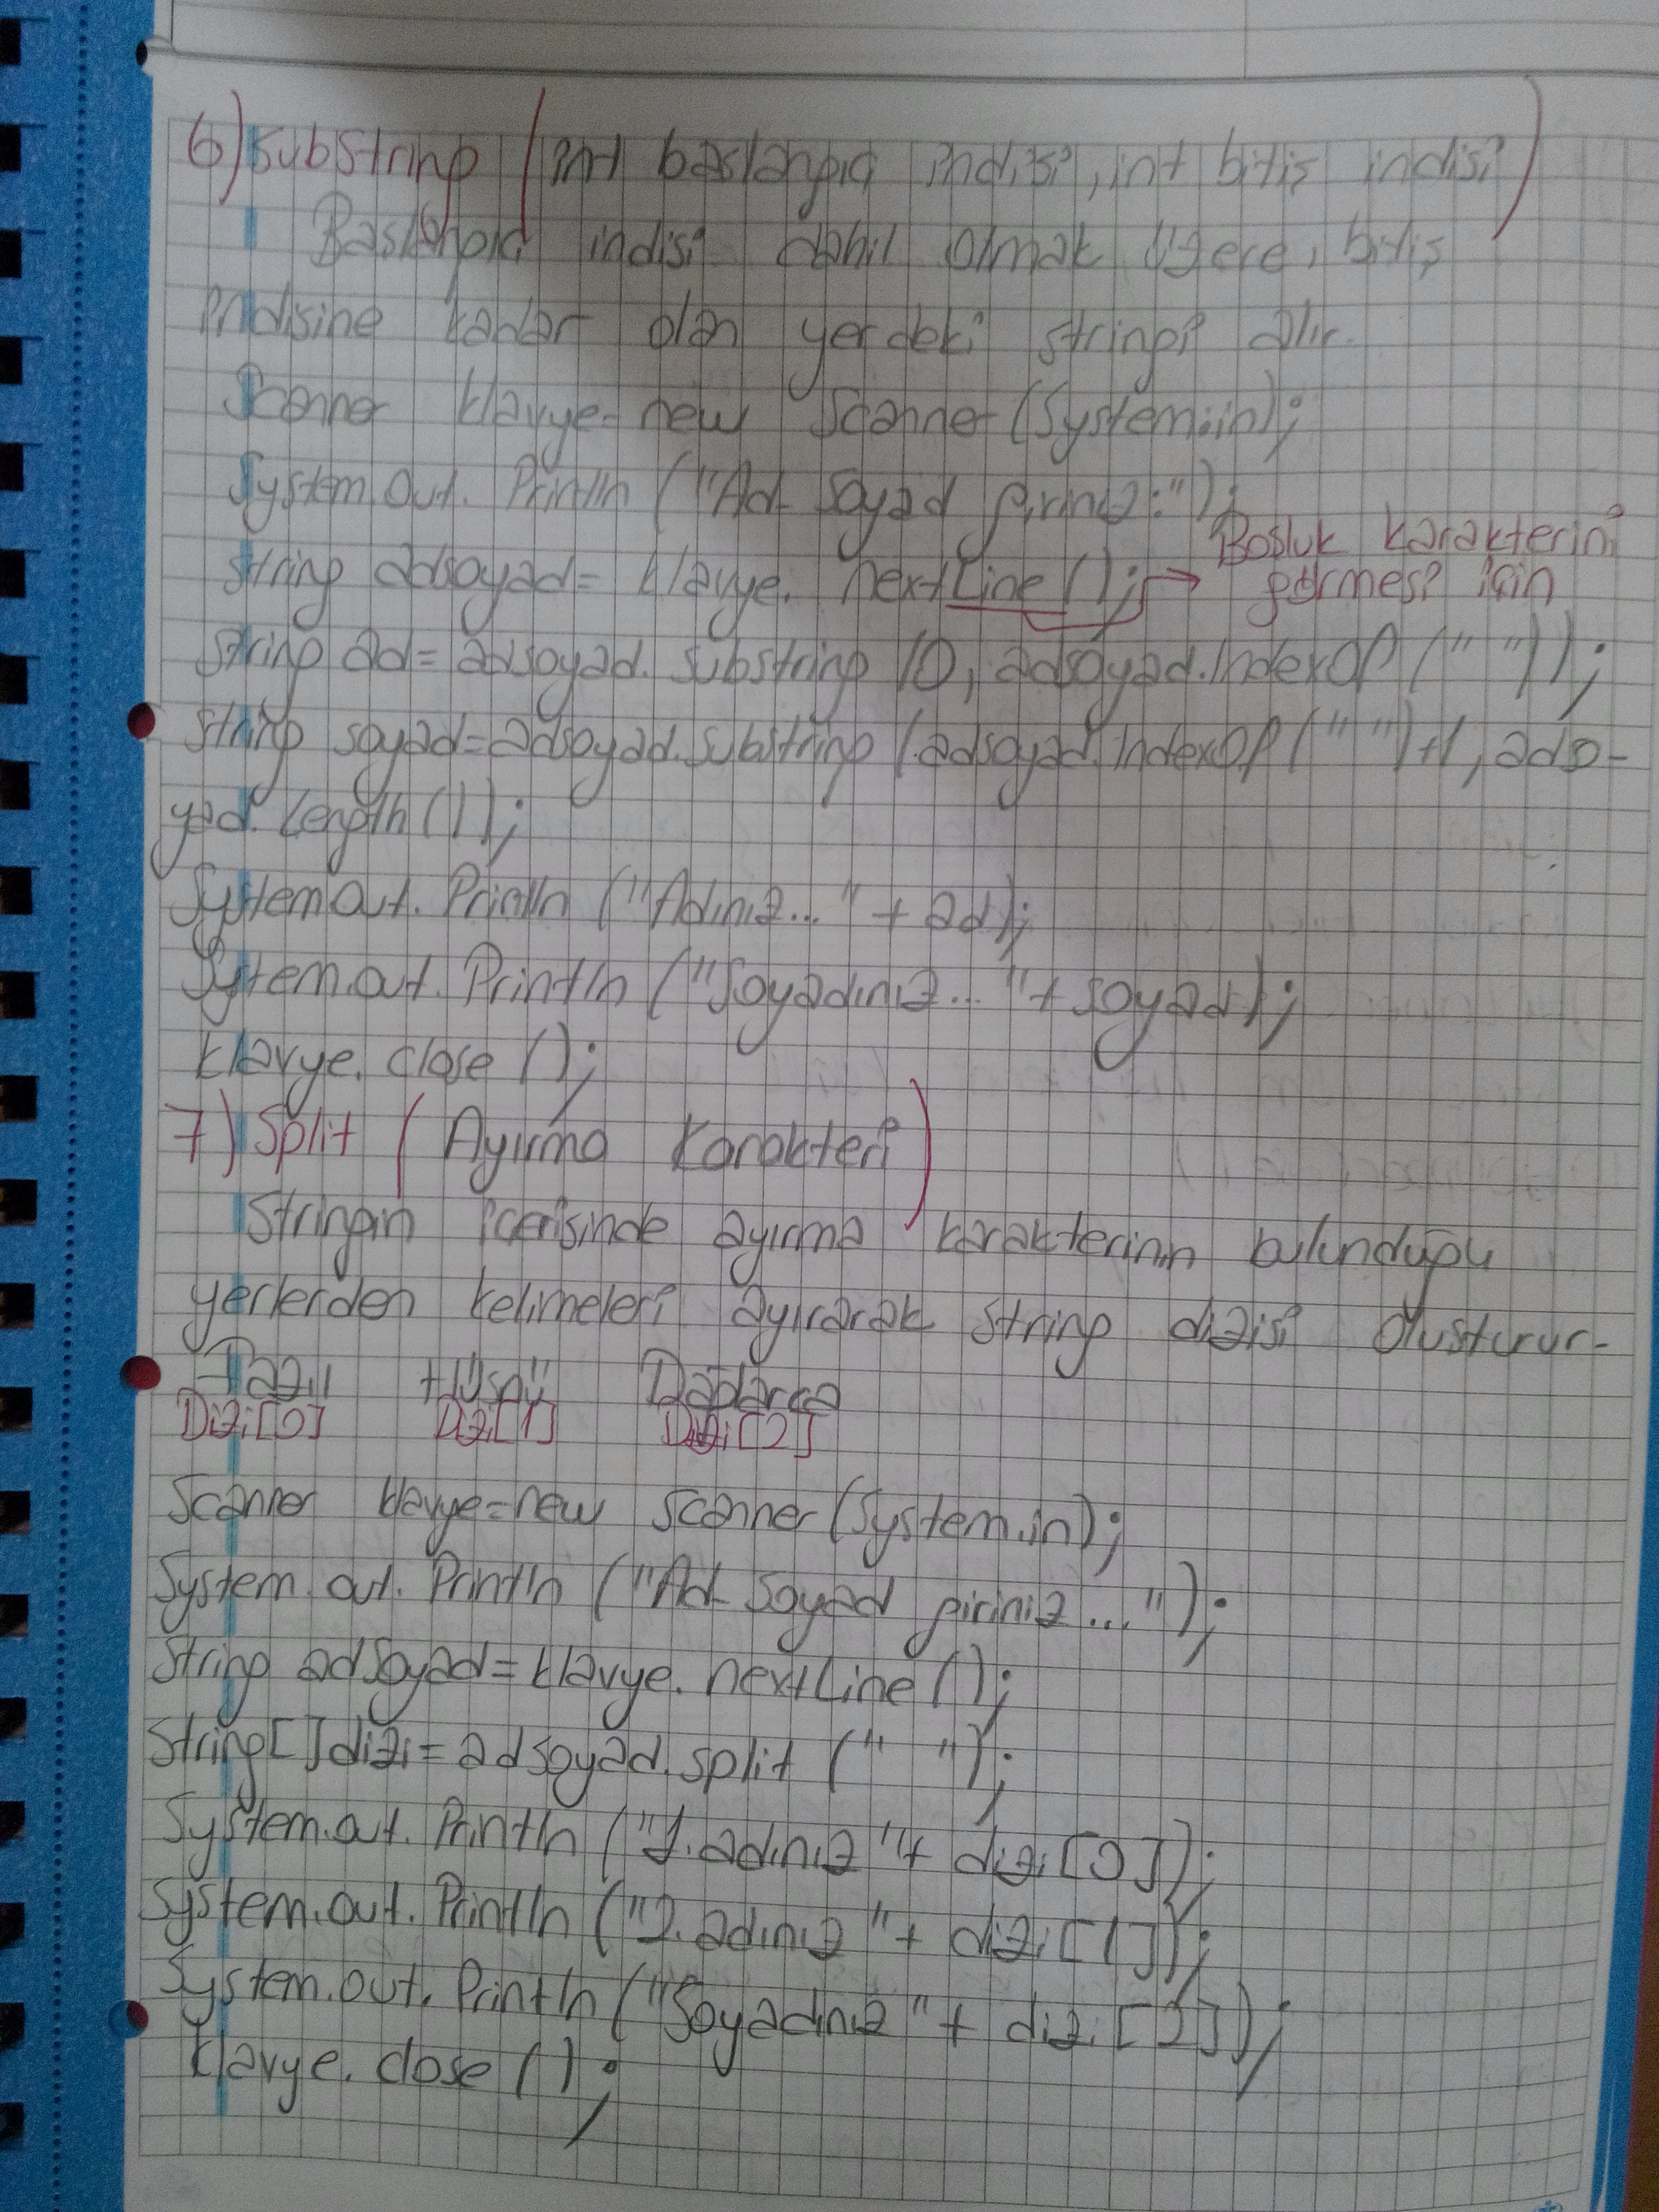 6) Substring (int başlangıç indisi, int bitiş indisi)
Başlangıç indisi dahil olmak üzere, bitiş
indisine kadar olan yerdeki stringi alır.
Scanner klavye=new Scanner(System.in);
System.out.Println("Ad Soyad giriniz:");
String adsoyad= klavye.nextLine(); → Boşluk karakterini
görmesi için
String ad= adsoyad.substring(0, adsoyad.IndexOf(" "));
String soyad=adsoyad.substring(adsoyad.IndexOf(" ")+1, adso-
yad.Length());
System.out.Println("Adınız..." + ad);
System.out.Println("Soyadınız..."+soyad);
klavye.close();
7) Split (Ayırma Karakteri)
Stringin içerisinde ayırma karakterinin bulunduğu
yerlerden kelimeleri ayırarak string dizisi oluşturur.
Fazıl Hüsnü Dağlarca
Dizi[0] Dizi[1] Dizi[2]
Scanner klavye=new Scanner(System.in);
System.out.Println("Ad Soyad giriniz...");
String adsoyad=klavye.nextLine();
String[]dizi=adsoyad.split(" ");
System.out.Println("1.adınız"+ dizi[0]);
System.out.Println("2.adınız"+ dizi[1]);
System.out.Println("Soyadınız"+ dizi[2]);
klavye.close();